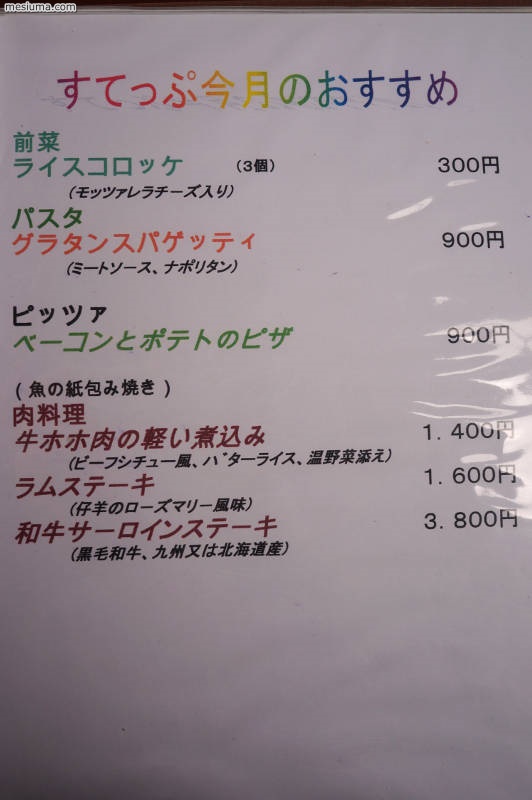 mesiuma.com
すてっぷ今月のおすすめ
前菜
ライスコロッケ (3個) 300円
(モッツァレラチーズ入り)
パスタ
グラタンスパゲッティ 900円
(ミートソース、ナポリタン)
ピッツァ
ベーコンとポテトのピザ 900円
(魚の紙包み焼き)
肉料理
牛ホホ肉の軽い煮込み 1.400円
(ビーフシチュー風、バターライス、温野菜添え)
ラムステーキ 1.600円
(仔羊のローズマリー風味)
和牛サーロインステーキ 3.800円
(黒毛和牛、九州又は北海道産)